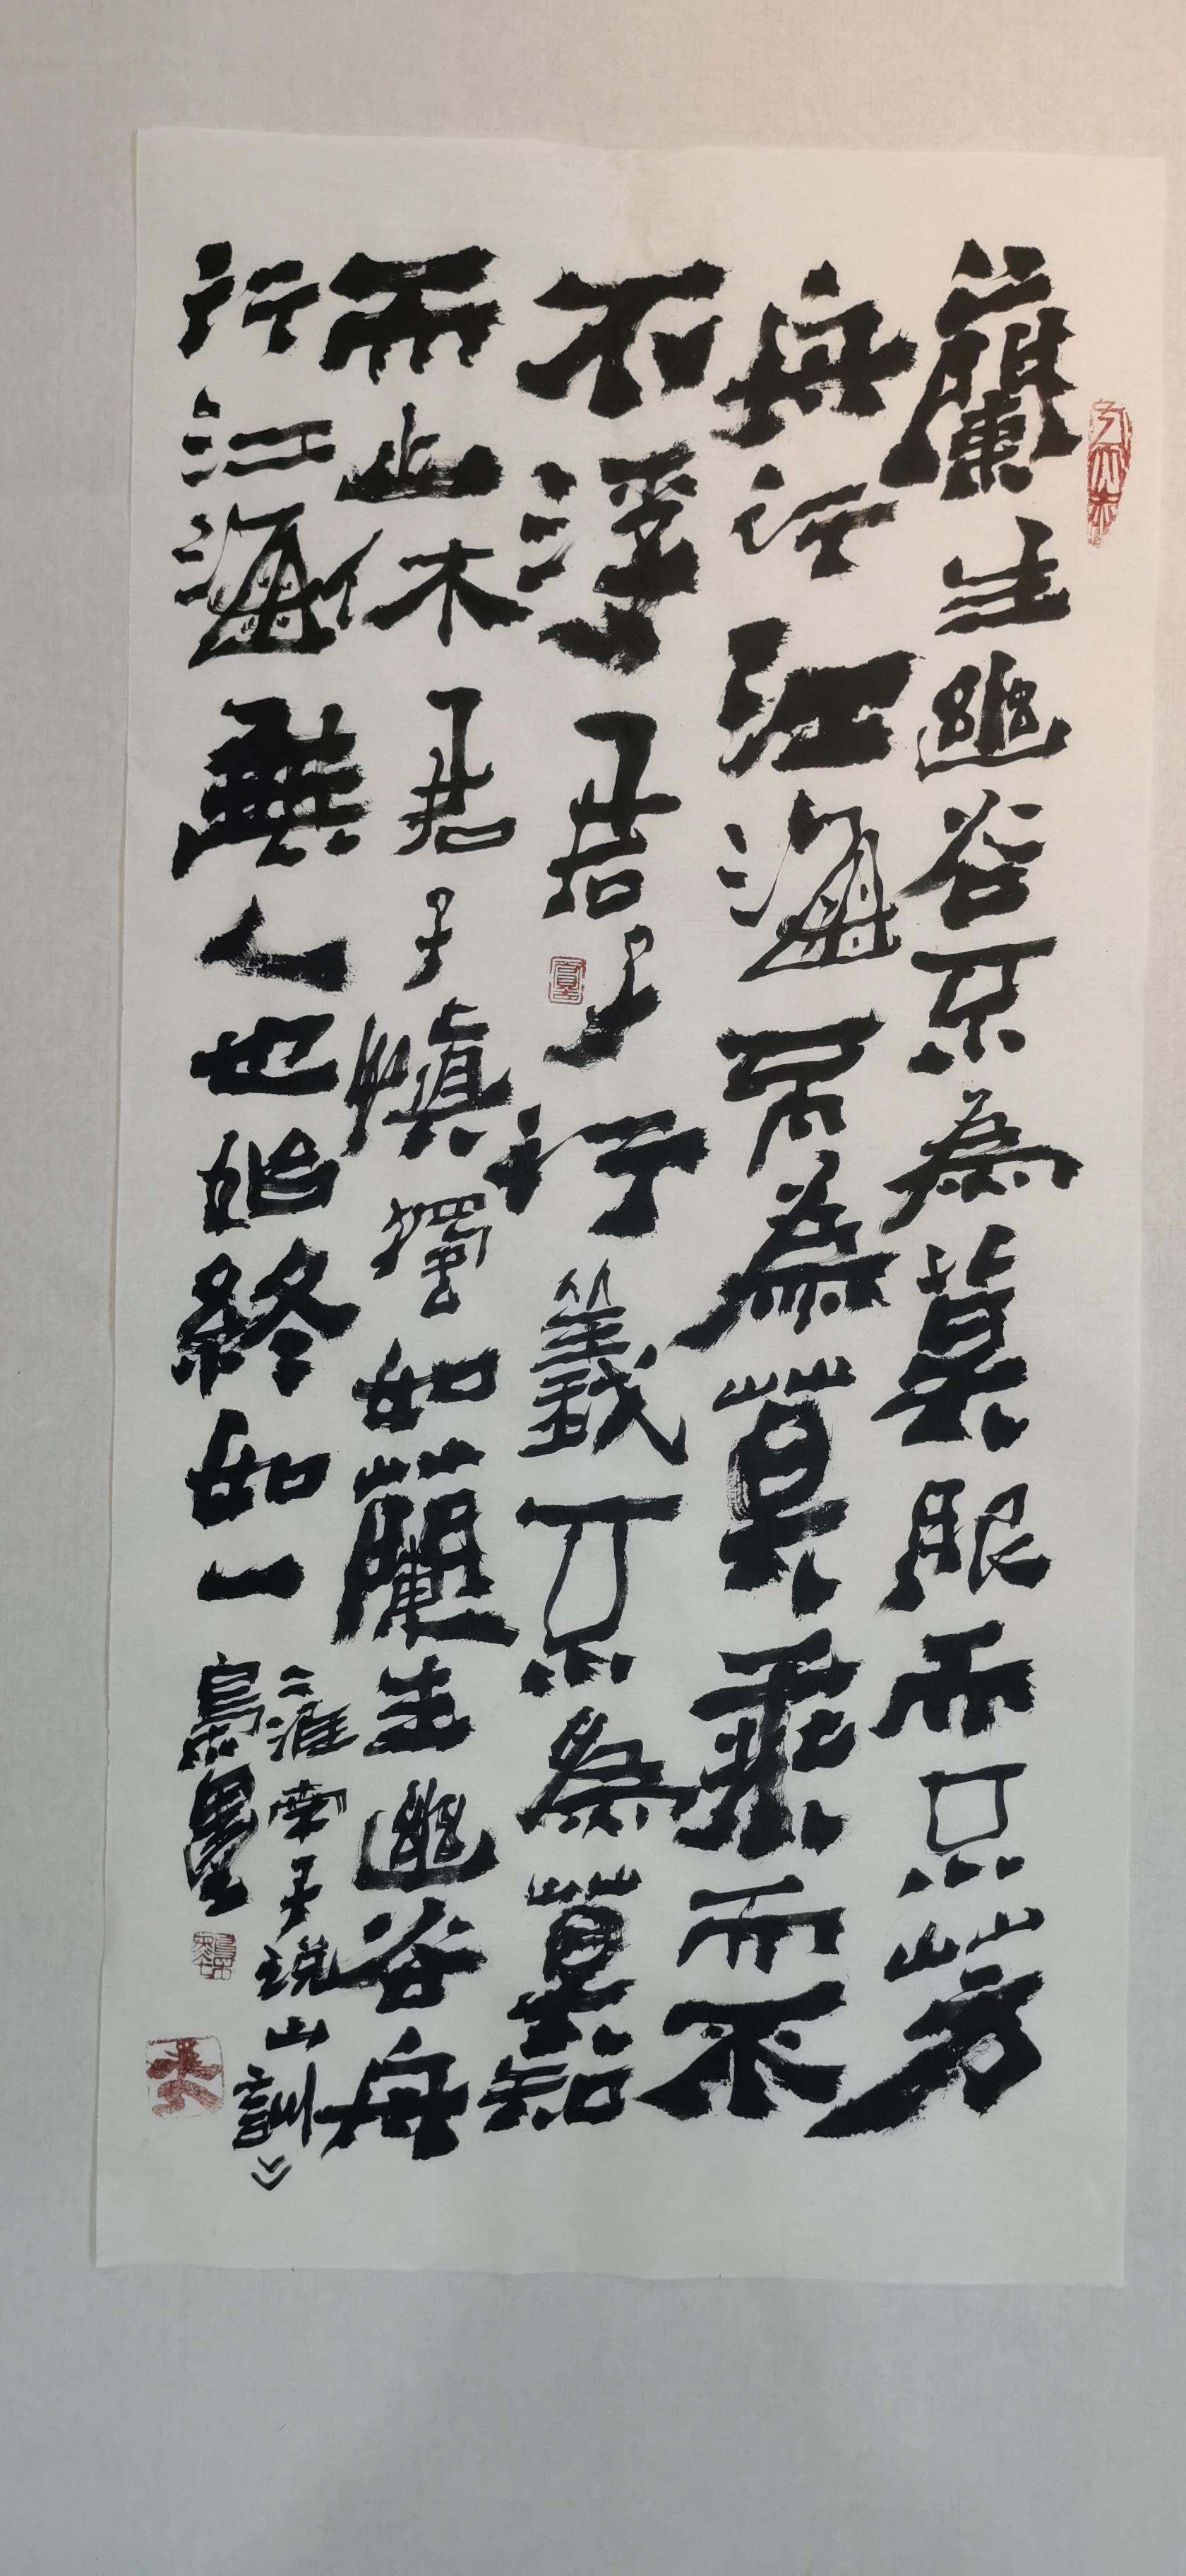 蘭生幽谷不為莫服而不芳
舟行江海不為莫乘而不
不浮君子行義不為莫知
而止休君子慎獨如蘭生幽谷舟
行江海無人也始終如一
淮南子説山訓
墨